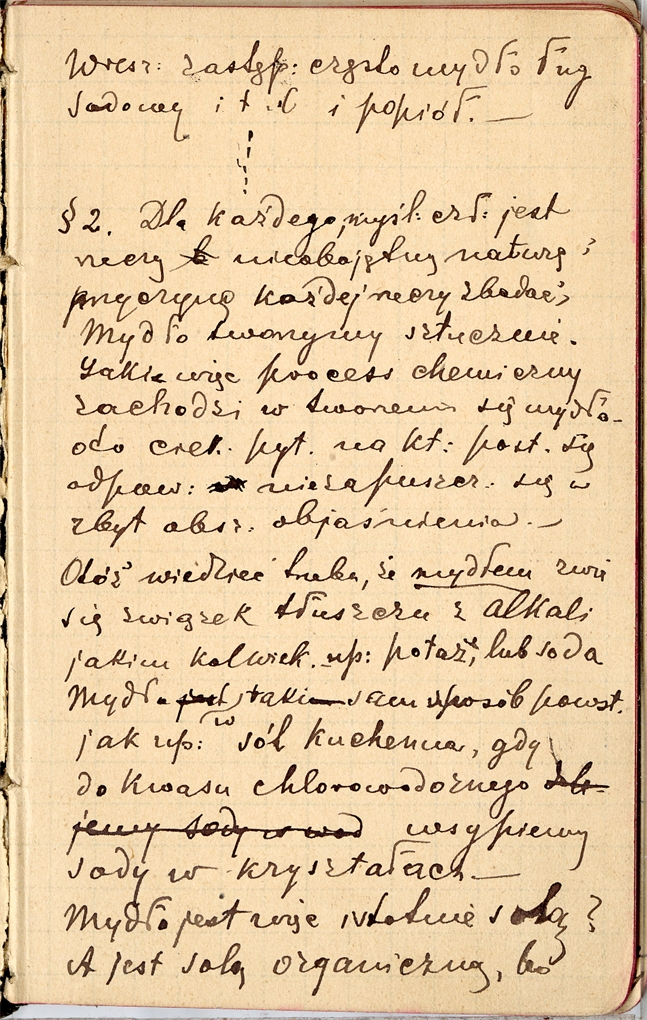 Wresz: zastęp: często mydło ług
sodowy i t d i popiół. —
§ 2. Dla każdego, myśl: czł: jest
rzeczy nieobojętną naturę i
przyczynę każdej rzeczy zbadać,
Mydło tworzymy sztucznie.
Jaki więc process chemiczny
zachodzi w tworzeniu się mydła-
oto ciek. pyt. na kt: post. się
odpow: niezapuszcz. się w
zbyt abs: objaśnienia. —
Otóż wiedzieć trzeba, że mydłem zwie
się związek tłuszczu z alkali
jakim kolwiek. np: potaż, lub soda
Mydło jest w taki sam sposób powst.
jak np: sól kuchenna, gdy
do kwasu chlorowodornego
jemy sody w wod wsypiemy
sody w kryształach —
Mydło jest więc istotnie solą?
A jest solą organiczną, bo